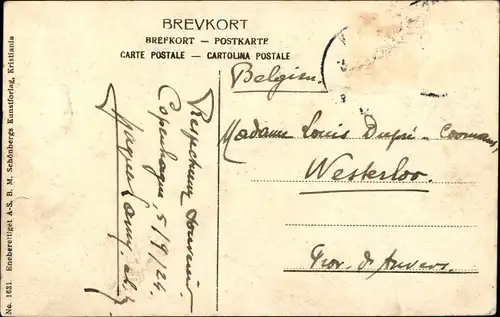 BREVKORT
BREFKORT — POSTKARTE
CARTE POSTALE — CARTOLINA POSTALE
Belgien.
Madame Louis Dupré - Coomans,
Westerloo.
Prov. d'Anvers.
souvenir
Copenhague, 5/9/24.
No. 1631. Eneberettiget A-S. B. M. Schönbergs Kunstforlag, Kristiania